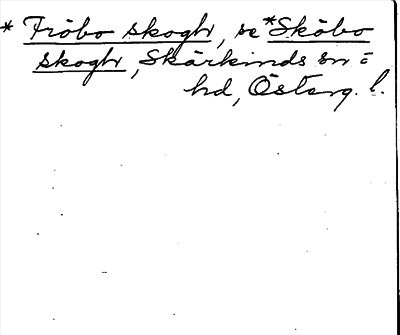 * Fröbo skogh, se *Skäbo
skogh, Skärkinds sn o
hd, Österg. l.